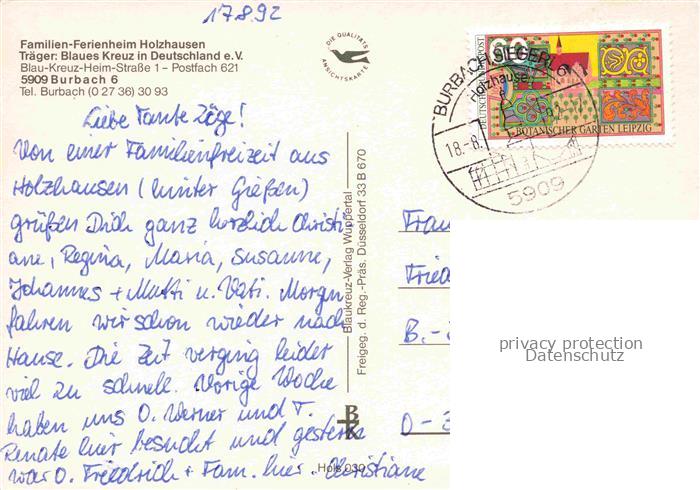 17.8.92
Familien-Ferienheim Holzhausen
Träger: Blaues Kreuz in Deutschland e.V.
Blau-Kreuz-Heim-Straße 1 – Postfach 621
5909 Burbach 6
Tel. Burbach (0 27 36) 30 93
DIE QUALITÄTS
ANSICHTSKARTE
DEUTSCHE BUNDESPOST
60
BOTANISCHER GARTEN LEIPZIG
BURBACH, SIEGERL
Holzhausen
18.-8.
5909
Liebe Tante Zöge!
Von einer Familienfreizeit aus
Holzhausen (hinter Gießen)
grüßen Dich ganz herzlich Christi-
ane, Regina, Maria, Susanne,
Johannes + Mutti u. Vati. Morgen
fahren wir schon wieder nach
Hause. Die Zeit verging leider
viel zu schnell. Vorige Woche
haben uns O. Werner und T.
Renate hier besucht und gestern
war O. Friedrich + Fam. hier. Christiane
Blaukreuz-Verlag Wuppertal
Freigeg. d. Reg.-Präs. Düsseldorf 33 B 670
BK
Hols 030
Frau
Fried
B.-
D-3
privacy protection
Datenschutz